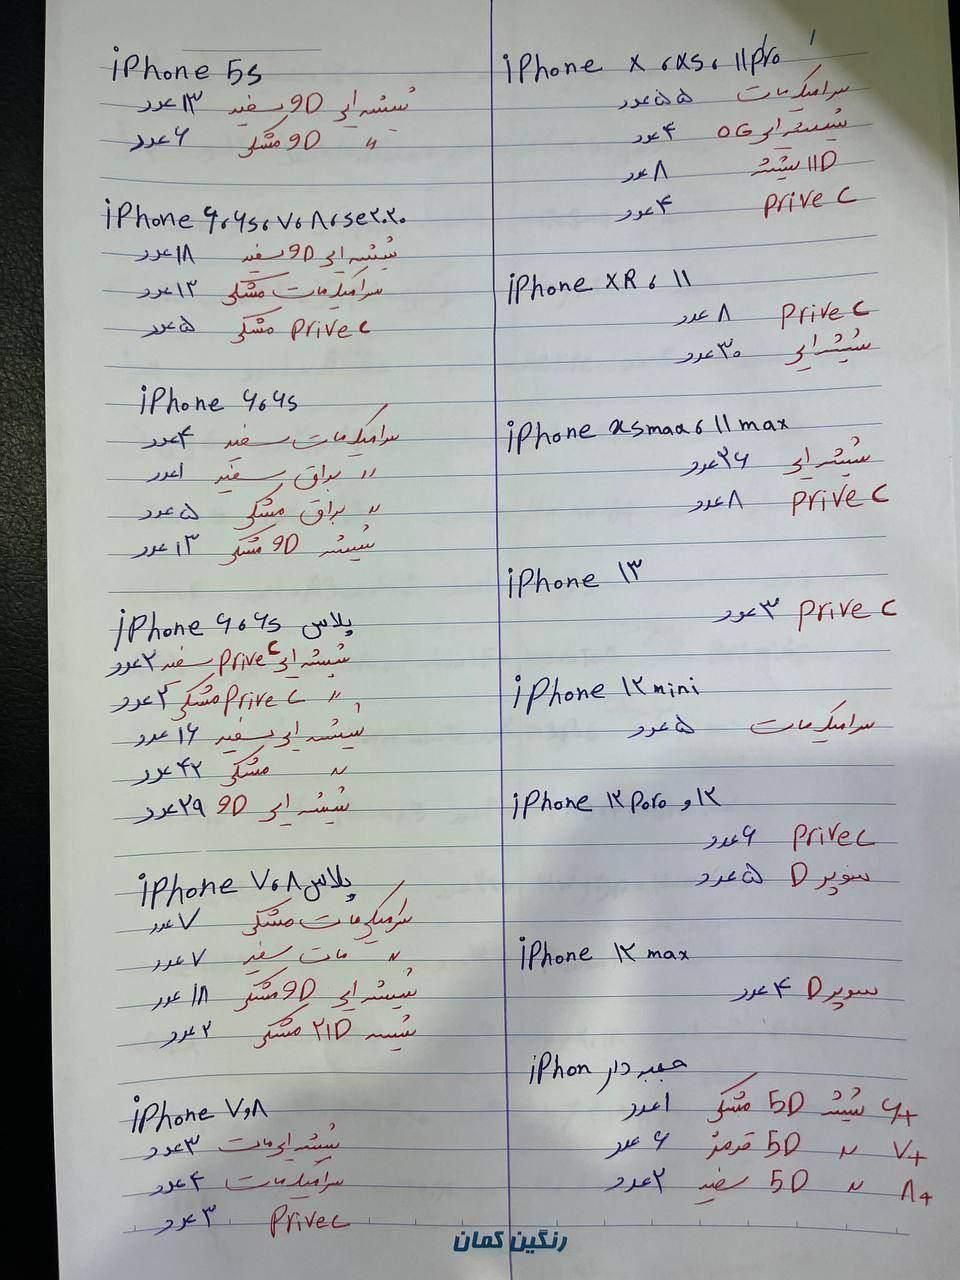 iPhone 5s
شیشه ایی 9D سفید ۱۳ عدد
〃 9D مشکی ۶ عدد
iPhone ۶،۶s،۷،۸،se۲۰۲۰
شیشه ایی 9D سفید ۱۸ عدد
سرامیک مات مشکی ۱۳ عدد
Prive C مشکی ۵ عدد
iPhone ۶،۶s
سرامیک مات سفید ۴ عدد
〃 براق سفید ۱ عدد
〃 براق مشکی ۵ عدد
شیشه 9D مشکی ۱۳ عدد
iPhone ۶،۶s پلاس
شیشه ایی Prive C سفید ۲ عدد
〃 Prive C مشکی ۲ عدد
شیشه ایی سفید ۱۶ عدد
〃 مشکی ۴۲ عدد
شیشه ایی 9D ۲۹ عدد
iPhone ۷،۸ پلاس
سرامیک مات مشکی ۷ عدد
〃 مات سفید ۷ عدد
شیشه ایی 9D مشکی ۱۸ عدد
شیشه ۲۱D مشکی ۲ عدد
iPhone ۷و۸
شیشه ایی مات ۳ عدد
سرامیک مات ۴ عدد
Prive C ۳ عدد
iPhone x،xs،11pro
سرامیک مات ۵۵ عدد
شیشه ایی OG ۴ عدد
11D شیشه ۸ عدد
Prive C ۴ عدد
iPhone XR،11
Prive C ۸ عدد
شیشه ایی ۳۰ عدد
iPhone xsmax،11max
شیشه ایی ۳۶ عدد
Prive C ۸ عدد
iPhone ۱۳
Prive C ۳ عدد
iPhone ۱۲mini
سرامیک مات ۵ عدد
iPhone ۱۲poro و ۱۲
Prive C ۶ عدد
سوپر D ۵ عدد
iPhone ۱۲ max
سوپر D ۴ عدد
iPhon جعبه دار
۶+ شیشه 5D مشکی ۱ عدد
۷+ 〃 5D قرمز ۶ عدد
۸+ 〃 5D سفید ۲ عدد
رنگین کمان